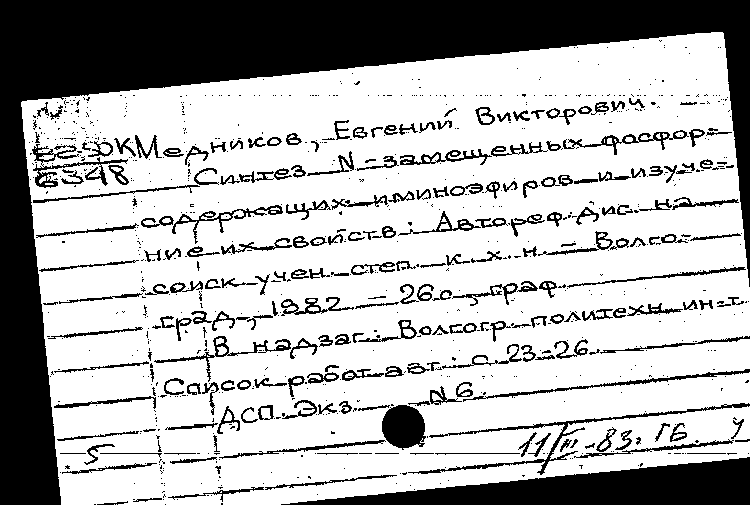 Медников, Евгений Викторович. –
6348 Синтез N-замещенных фосфор=
содержащих иминоэфиров и изуче=
ние их свойств: Автореф. дис. на
соиск учен. степ. к. х. н. – Волго-
град, 1982 – 26 с., граф.
В надзаг.: Волгогр. политехн. ин-т
Список работ авт.: с. 23-26.
ДСП. Экз. N 6.
5 11/III-83. ГБ. У